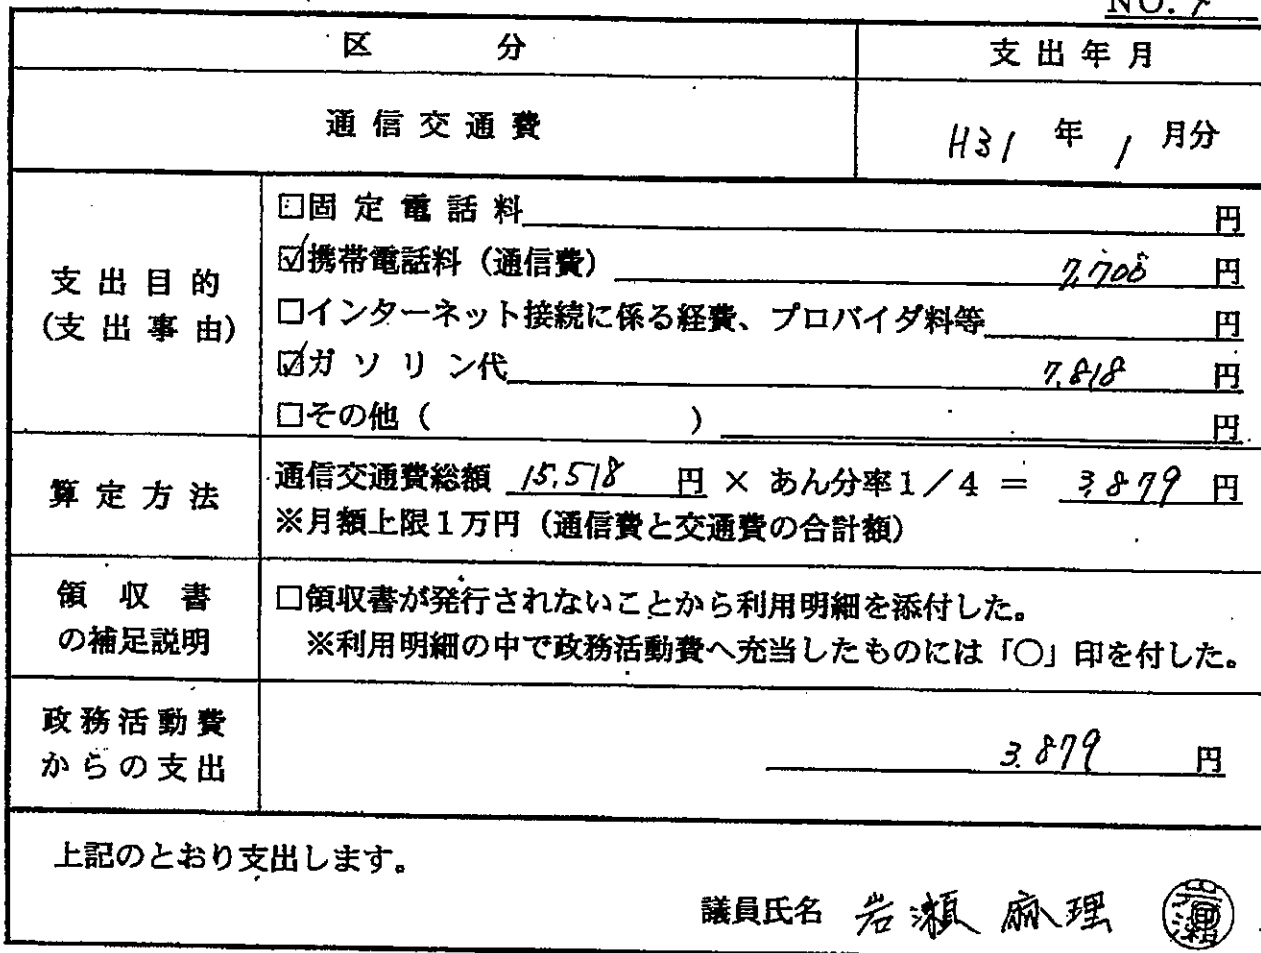 NO.
区分 支出年月
通信交通費 H31年1月分
支出目的
(支出事由)
□固定電話料 円
☑携帯電話料（通信費） 7,700 円
□インターネット接続に係る経費、プロバイダ料等 円
☑ガソリン代 7,818 円
□その他（ ） 円
算定方法
通信交通費総額 15,518 円 × あん分率1／4 ＝ 3,879 円
※月額上限1万円（通信費と交通費の合計額）
領収書
の補足説明
□領収書が発行されないことから利用明細を添付した。
※利用明細の中で政務活動費へ充当したものには「〇」印を付した。
政務活動費
からの支出
3.879 円
上記のとおり支出します。
議員氏名 岩瀬 麻理 岩瀬